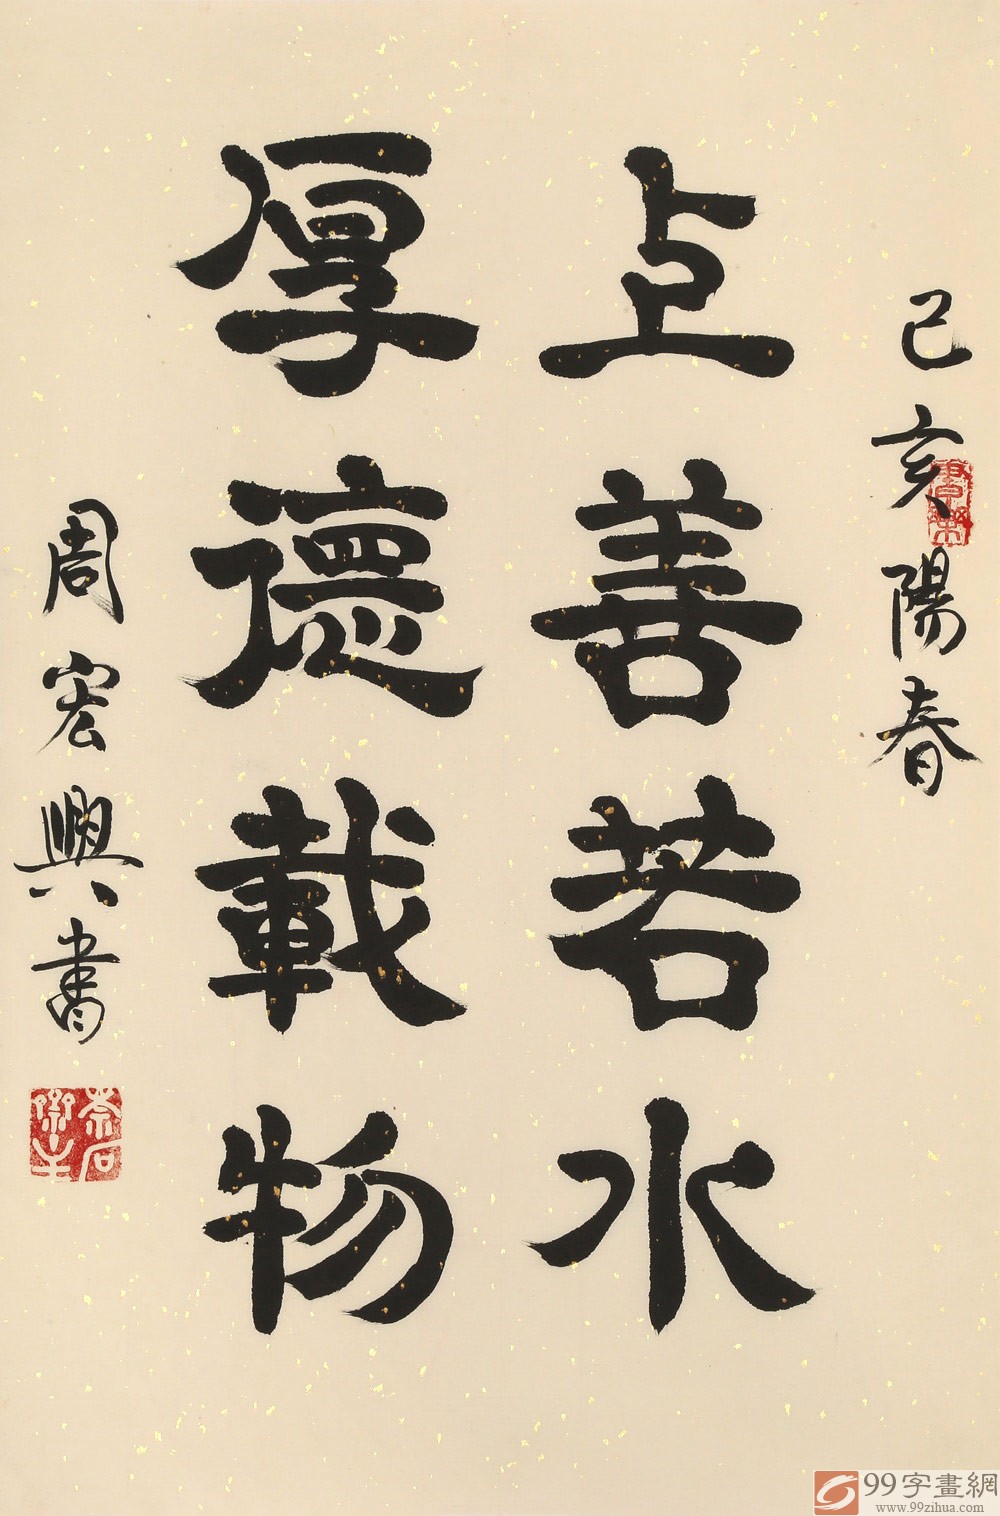 己亥陽春
上善若水
厚德載物
周宏興書
99字畫網
www.99zihua.com